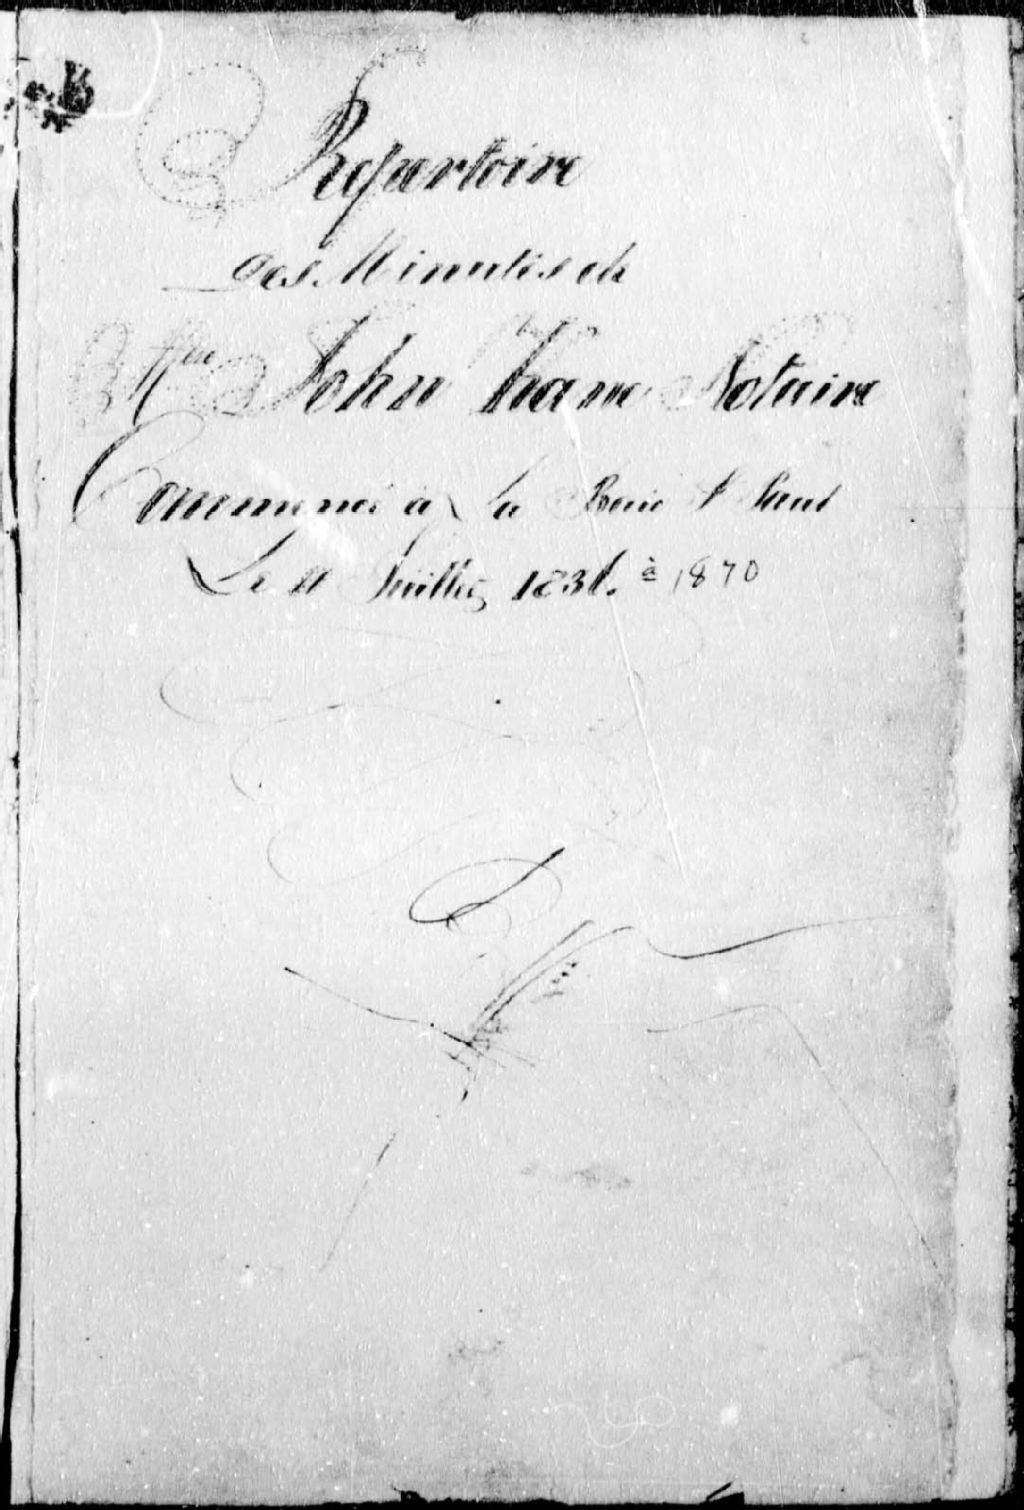 Repertoire
des Minutes de
Mtre John Kane Notaire
Commencé à La Baie St Paul
Le 11 Juillet à 1870